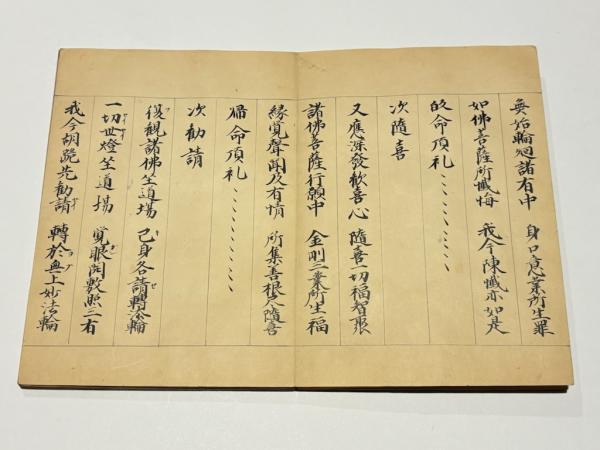 無始輪廻諸有中 身口意業所生罪
如佛菩薩所懺悔 我今陳懺亦如是
皈命頂礼、、、、、、、、
次随喜
又應深發歓喜心 隨喜一切福智聚
諸佛菩薩行願中 金剛三業所生福
縁覚聲聞及有情 所集善根尽隨喜
帰命頂礼、、、、、、、、、
次勧請
復観諸佛坐道場 己身各請轉法輪
一切世燈坐道場 覚眼開敷照三有
我今胡跪先勧請 轉於無上妙法輪